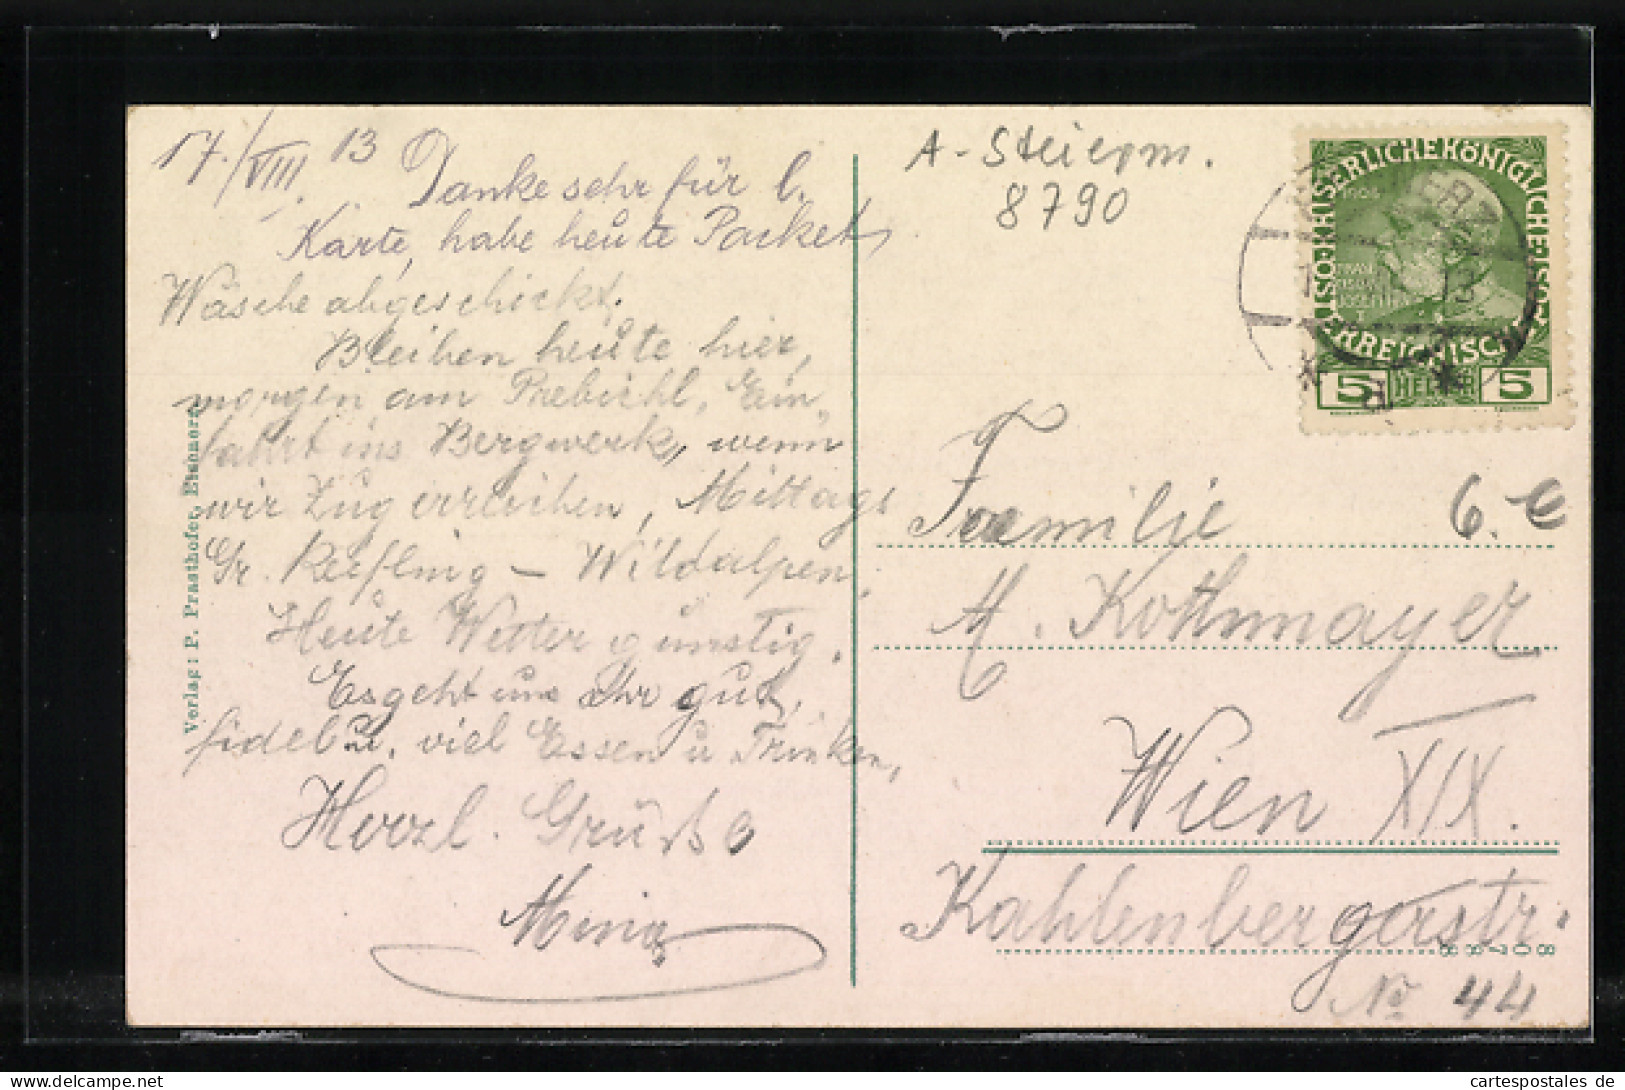 17./VIII. 13 Danke sehr für l.
Karte, habe heute Packet
Wäsche abgeschickt.
Bleiben heute hier,
morgen am Prebichl, Ein-
fahrt ins Bergwerk, wenn
wir Zug erreichen, Mittags
Gr. Reifling - Wildalpen,
Heute Wetter günstig.
Es geht uns sehr gut,
fidel u. viel Essen u Trinken,
Herzl. Grüße
Mina
Verlag: P. Prasthofer, Eisenerz
A-Steierm.
8790
KAISERLICHE KÖNIGLICHE
ÖSTERREICHISCHE
5 HELLER 5
13
6.-e
Familie
M. Kothmayer
Wien XIX.
Kahlenbergerstr.
No 44
80788
cartespostales de